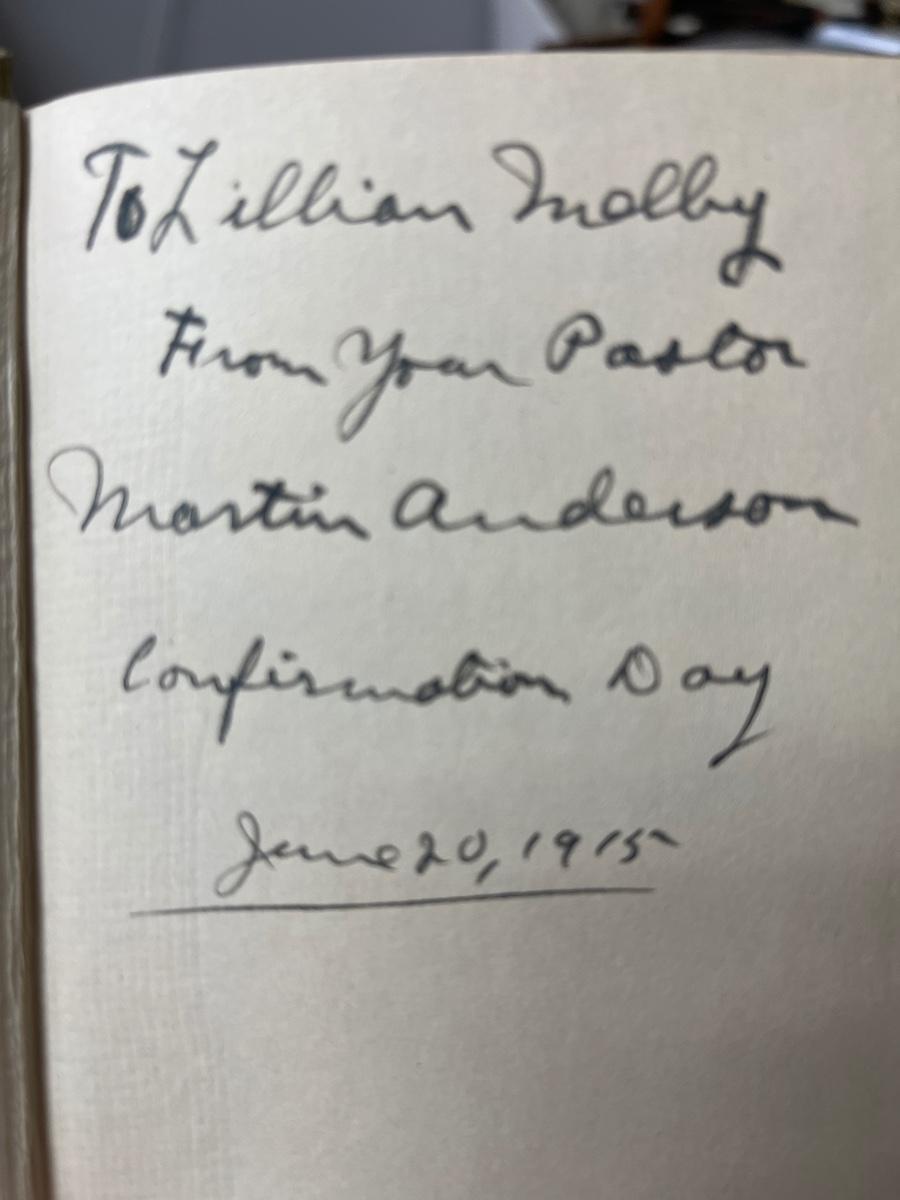 To Lillian Melby
From Your Pastor
Martin Anderson
Confirmation Day
June 20, 1915